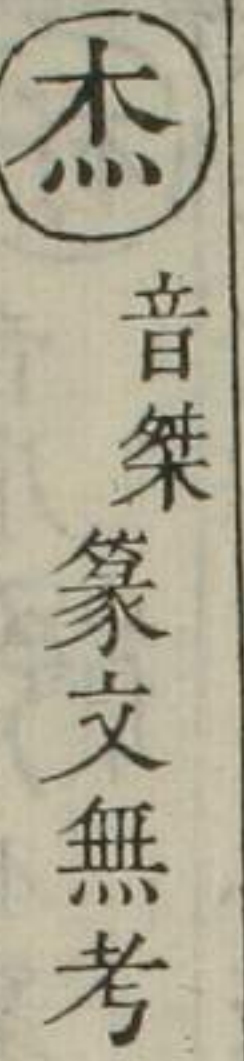 杰
音桀
篆文無考